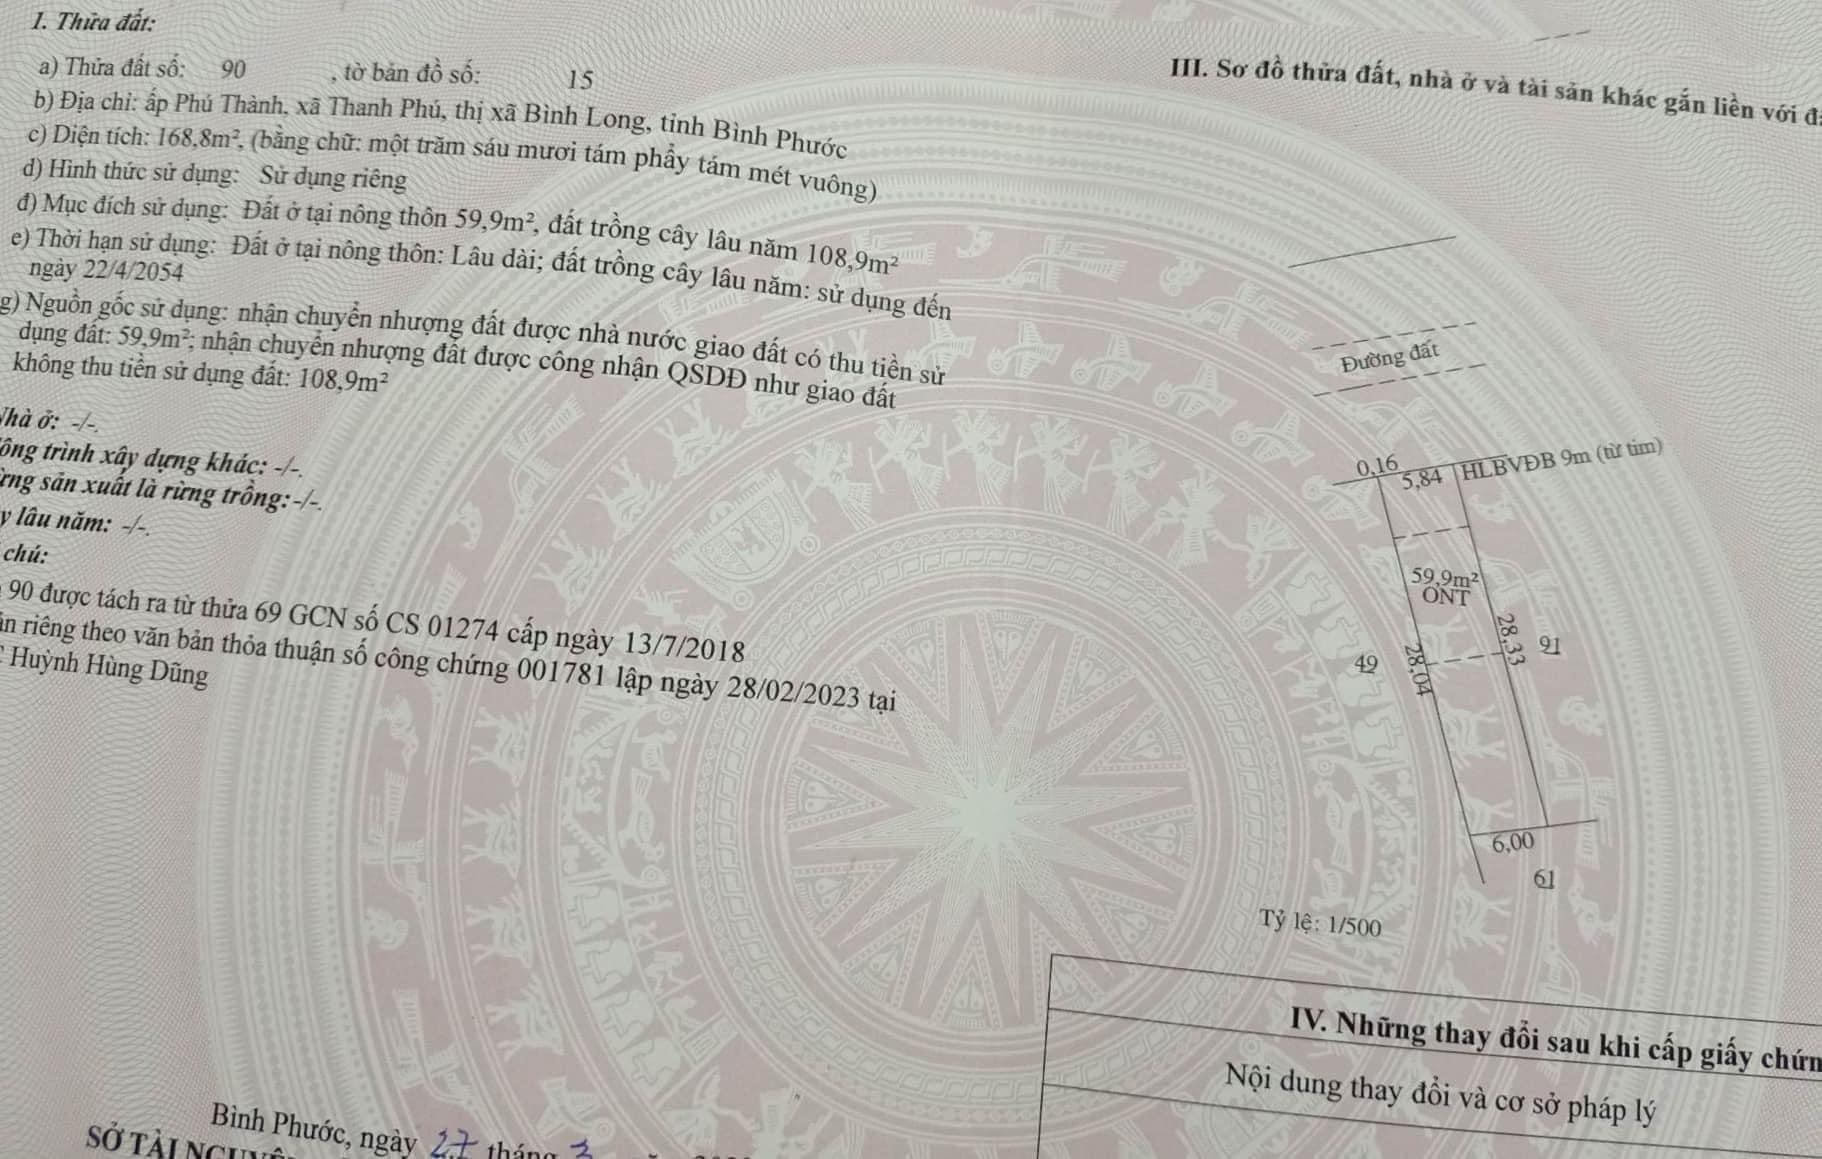 1. Thửa đất:
a) Thửa đất số: 90 , tờ bản đồ số: 15
b) Địa chỉ: ấp Phú Thành, xã Thanh Phú, thị xã Bình Long, tỉnh Bình Phước
c) Diện tích: 168,8m², (bằng chữ: một trăm sáu mươi tám phẩy tám mét vuông)
d) Hình thức sử dụng: Sử dụng riêng
đ) Mục đích sử dụng: Đất ở tại nông thôn 59,9m², đất trồng cây lâu năm 108,9m²
e) Thời hạn sử dụng: Đất ở tại nông thôn: Lâu dài; đất trồng cây lâu năm: sử dụng đến
ngày 22/4/2054
g) Nguồn gốc sử dụng: nhận chuyển nhượng đất được nhà nước giao đất có thu tiền sử
dụng đất: 59,9m²; nhận chuyển nhượng đất được công nhận QSDĐ như giao đất
không thu tiền sử dụng đất: 108,9m²
Nhà ở: -/-.
ông trình xây dựng khác: -/-.
ừng sản xuất là rừng trồng: -/-.
y lâu năm: -/-.
chú:
90 được tách ra từ thửa 69 GCN số CS 01274 cấp ngày 13/7/2018
ản riêng theo văn bản thỏa thuận số công chứng 001781 lập ngày 28/02/2023 tại
Huỳnh Hùng Dũng
Bình Phước, ngày 27 tháng 3
SỞ TÀI NGUYÊ
III. Sơ đồ thửa đất, nhà ở và tài sản khác gắn liền với đ
Đường đất
0,16
5,84
HLBVĐB 9m (từ tim)
59,9m²
ONT
28,33
91
49
28,04
6,00
61
Tỷ lệ: 1/500
IV. Những thay đổi sau khi cấp giấy chứn
Nội dung thay đổi và cơ sở pháp lý